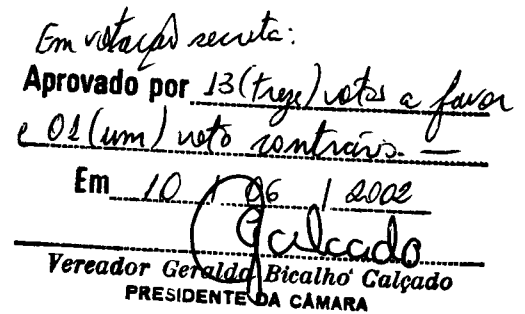 Em votação secreta:
Aprovado por 13 (treze) votos a favor
e 01 (um) voto contrário. —
Em 10 / 06 / 2002
GCalcado
Vereador Geraldo Bicalho Calçado
PRESIDENTE DA CÂMARA